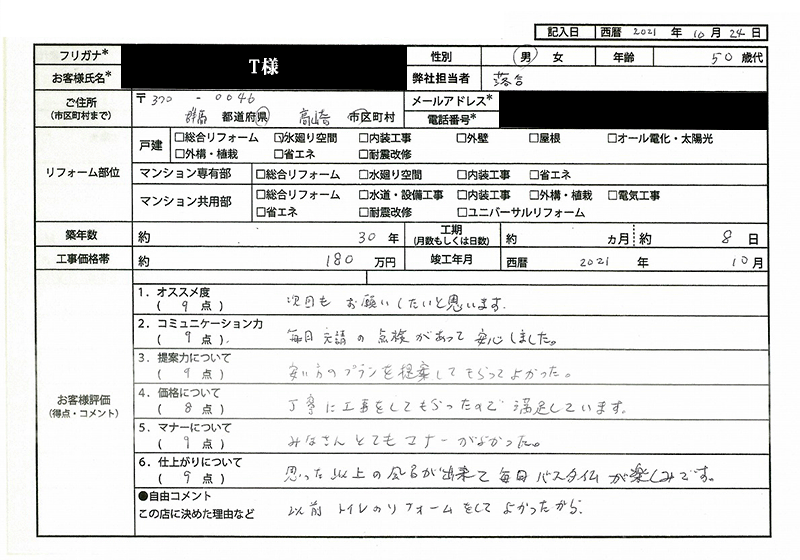 記入日 西暦 2021 年 10 月 24 日
フリガナ* T様 性別 男 女 年齢 50 歳代
お客様氏名* 弊社担当者 落合
ご住所 〒370-0046 メールアドレス*
(市区町村まで) 群馬 都道府県 高崎 市区町村 電話番号*
リフォーム部位 戸建 □総合リフォーム ☑水廻り空間 □内装工事 □外壁 □屋根 □オール電化・太陽光
□外構・植栽 □省エネ □耐震改修
マンション専有部 □総合リフォーム □水廻り空間 □内装工事 □省エネ
マンション共用部 □総合リフォーム □水道・設備工事 □内装工事 □外構・植栽 □電気工事
□省エネ □耐震改修 □ユニバーサルリフォーム
築年数 約 30 年 工期 (月数もしくは日数) 約 ヵ月 約 8 日
工事価格帯 約 180 万円 竣工年月 西暦 2021 年 10 月
お客様評価
(得点・コメント)
1. オススメ度
( 9 点 ) 次回も お願いしたいと思います.
2. コミュニケーション力
( 9 点 ) 毎日 元請の点検があって安心しました。
3. 提案力について
( 9 点 ) 安い方のプランを提案してもらってよかった。
4. 価格について
( 8 点 ) 丁寧に工事をしてもらったので満足しています。
5. マナーについて
( 9 点 ) みなさんとてもマナーがよかった。
6. 仕上がりについて
( 9 点 ) 思った以上の風呂が出来て毎日バスタイムが楽しみです。
●自由コメント
この店に決めた理由など 以前トイレのリフォームをしてよかったから.